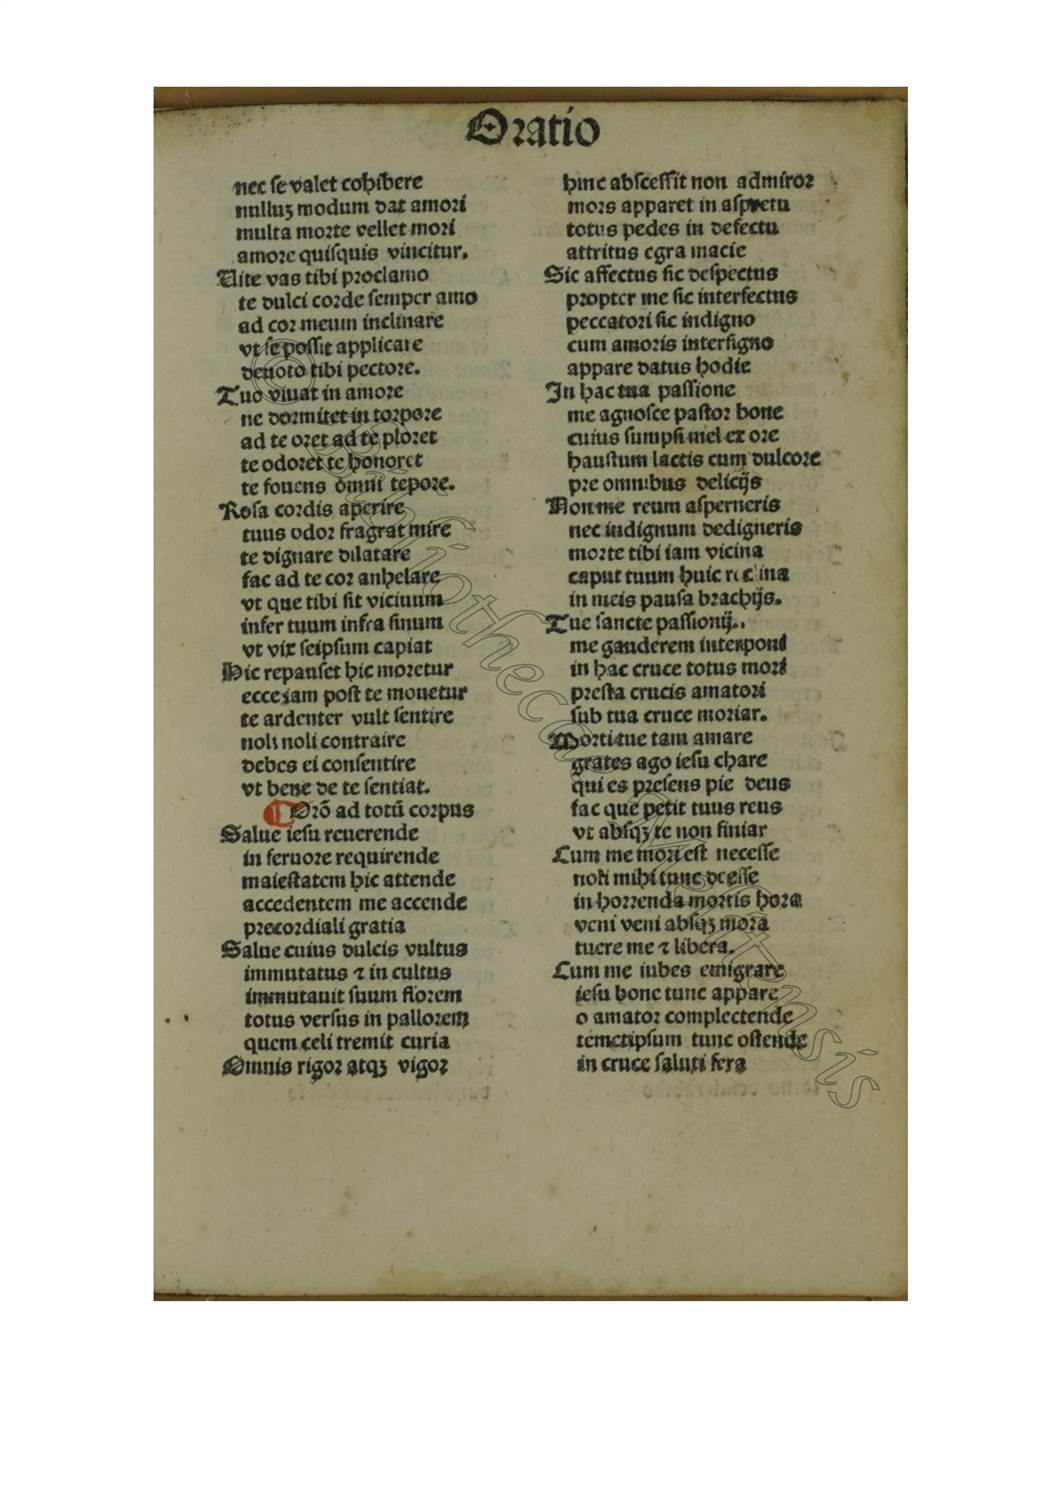 Oratio
nec se valet cohibere
nulluʒ modum dat amori
multa morte vellet mori
amore quisquis vincitur.
Uite vas tibi proclamo
te dulci corde semper amo
ad cor meum inclinare
vt se possit applicare
deuoto tibi pectore.
Tuo viuat in amore
ne dormitet in torpore
ad te oret ad te ploret
te odoret te honoret
te fouens omni tepore.
Rosa cordis aperire
tuus odor fragrat mire
te dignare dilatare
fac ad te cor anhelare
vt que tibi sit viciuum
infer tuum infra sinum
vt vix seipsum capiat
Hic repauset hic moretur
ecce iam post te mouetur
te ardenter vult sentire
noli noli contraire
debes ei consentire
vt bene de te sentiat.
Orō ad totū corpus
Salue iesu reuerende
in feruore requirende
maiestatem hic attende
accedentem me accende
precordiali gratia
Salue cuius dulcis vultus
immutatus ⁊ in cultus
immutauit suum florem
totus versus in pallorem
quem celi tremit curia
Omnis rigor atqʒ vigor
hinc abscessit non admiror
mors apparet in aspectu
totus pedes in defectu
attritus egra macie
Sic affectus sic despectus
propter me sic interfectus
peccatori sic indigno
cum amoris intersigno
appare datus hodie
In hac tua passione
me agnosce pastor bone
cuius sumpsi mel ex ore
haustum lactis cum dulcore
pre omnibus delicijs
Non me reum asperneris
nec indignum dedigneris
morte tibi iam vicina
caput tuum huic reclina
in meis pausa brachijs.
Tue sancte passionij.
me gauderem interponi
in hac cruce totus mori
presta crucis amatori
sub tua cruce moriar.
Morti tue tam amare
grates ago iesu chare
qui es presens pie deus
fac que petit tuus reus
vt absqʒ te non finiar
Cum me mori est necesse
noli mihi tunc deesse
in horrenda mortis hora
veni veni absqʒ mora
tuere me ⁊ libera.
Cum me iubes emigrare
iesu bone tunc appare
o amator complectende
temetipsum tunc ostende
in cruce salutifera